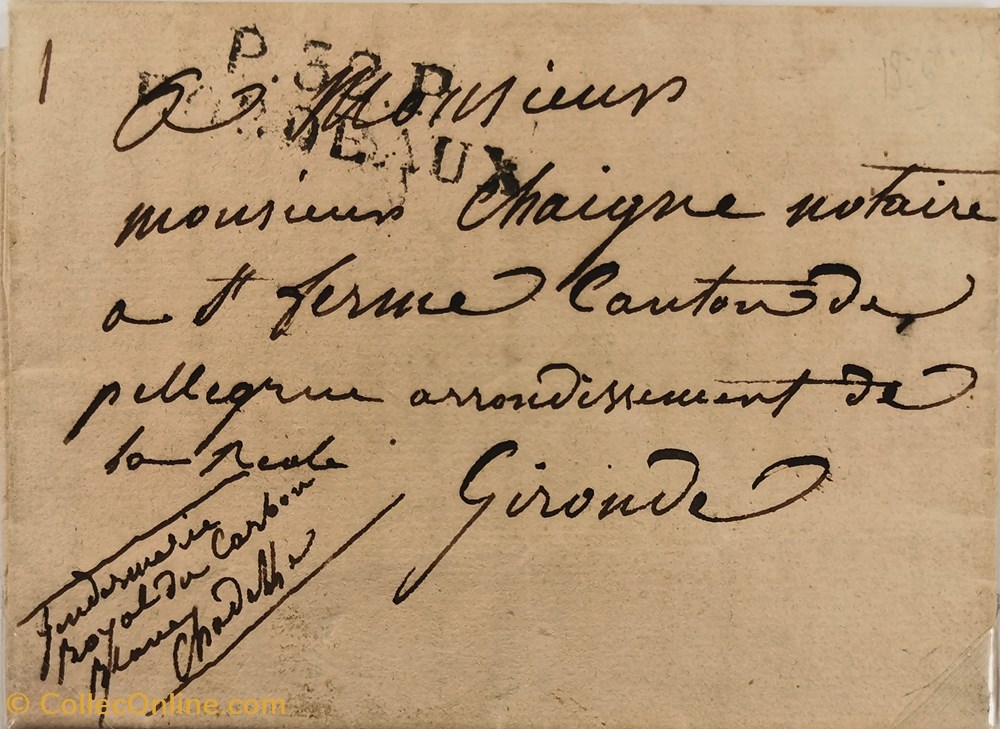 1
P.32.P.
BORDEAUX
A Monsieur
monsieur Chaigne notaire
a st ferme Canton de
pellegrue arrondissement de
la Reole
Gironde
Jendarmerie
royal du Carbon
Blanc
© CollecOnline.com